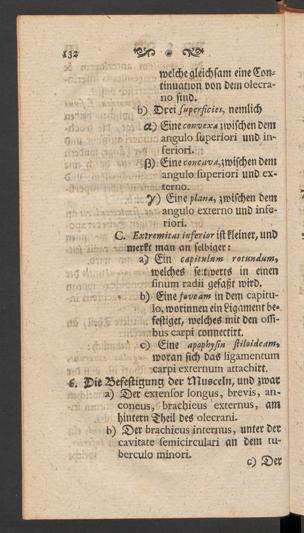 132
welche gleichsam eine Con-
tinuation von dem olecra-
no sind.
b) Drei superficies, nemlich
α) Eine convexa zwischen dem
angulo superiori und in-
feriori.
β) Eine concava, zwischen dem
angulo superiori und ex-
terno.
γ) Eine plana, zwischen dem
angulo externo und infe-
riori.
C. Extremitas inferior ist kleiner, und
merkt man an selbiger:
a) Ein capitulum rotundum,
welches seitwerts in einen
sinum radii gefaßt wird.
b) Eine foveam in dem capitu-
lo, worinnen ein Ligament be-
festiget, welches mit den ossi-
bus carpi connectirt.
c) Eine apophysin stiloideam,
woran sich das ligamentum
carpi externum attachirt.
6. Die Befestigung der Musceln, und zwar
a) Der extensor longus, brevis, an-
coneus, brachieus externus, am
hintern Theil des olecrani.
b) Der brachieus internus, unter der
cavitate semicirculari an dem tu-
berculo minori.
c) Der